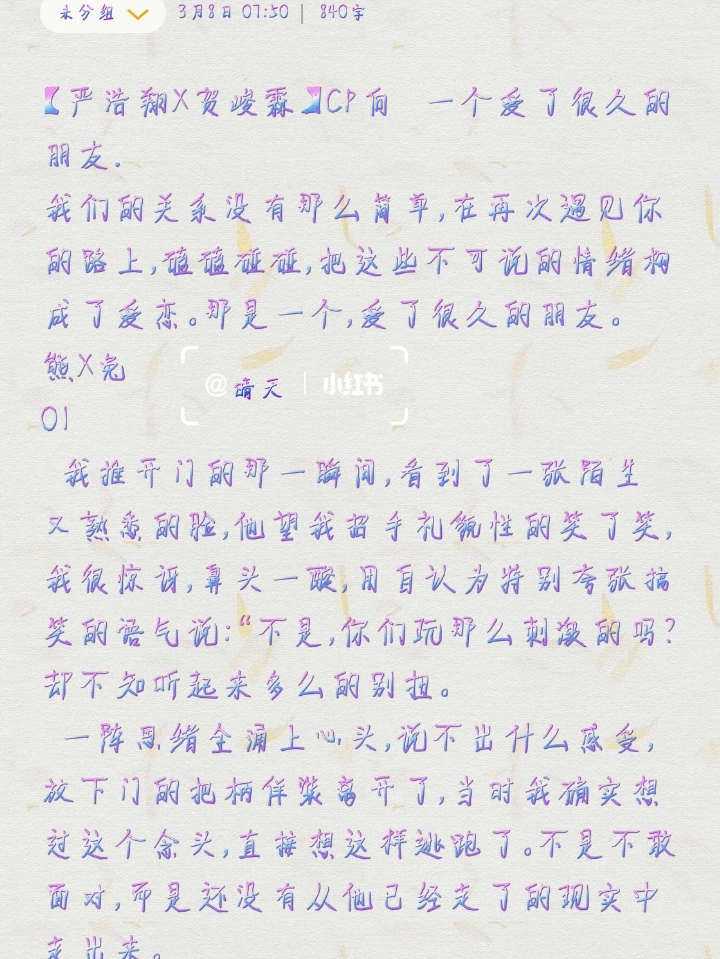 未分组 3月8日 07:50 | 840字
【严浩翔X贺峻霖】CP向 一个爱了很久的
朋友.
我们的关系没有那么简单,在再次遇见你
的路上,磕磕碰碰,把这些不可说的情绪构
成了爱恋。那是一个,爱了很久的朋友。
熊X兔
@晴天 | 小红书
01
我推开门的那一瞬间,看到了一张陌生
又熟悉的脸,他望我招手礼貌性的笑了笑,
我很惊讶,鼻头一酸,用自认为特别夸张搞
笑的语气说:“不是,你们玩那么刺激的吗?
却不知听起来多么的别扭。
一阵思绪全涌上心头,说不出什么感受,
放下门的把柄佯装离开了,当时我确实想
过这个念头,直接想这样逃跑了。不是不敢
面对,而是还没有从他已经走了的现实中
走出来。